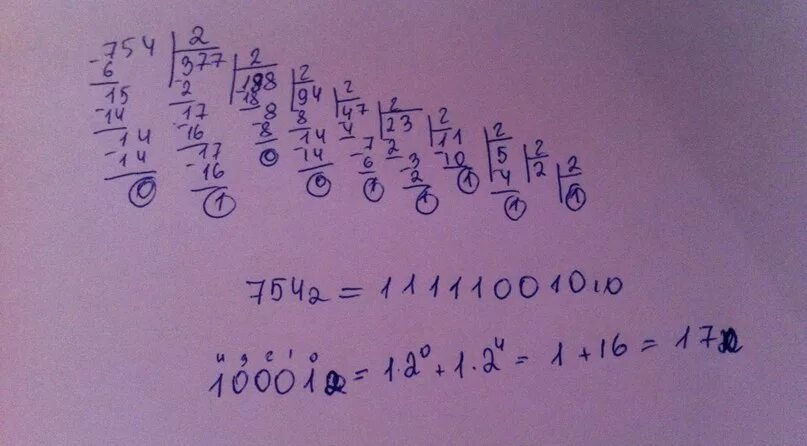 -754 2
6 377 2
15 -2 188 2
-14 17 -18 94 2
14 -16 8 8 47 2
-14 17 -8 14 -4 23 2
0 -16 0 -14 7 2 11 2
1 0 -6 3 -10 5 2
1 -2 1 -4 2 2
1 1 1
754₂ = 11111001010
4 3 2 1 0
10001 = 1·2⁰ + 1·2⁴ = 1 + 16 = 17